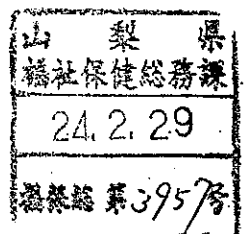 山梨県
福祉保健総務課
24. 2. 29
福保総 第3957号